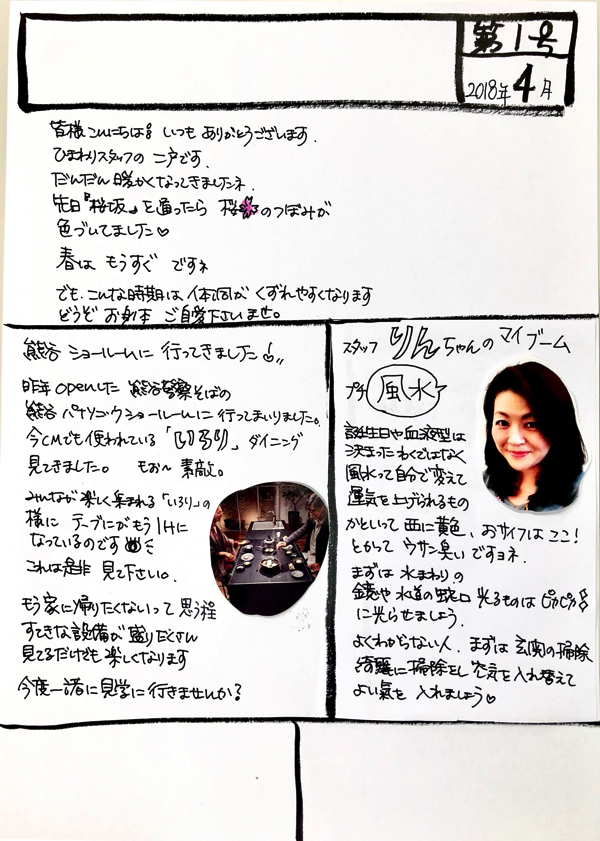 第1号
2018年4月
皆様こんにちは! いつも ありがとうございます.
ひまわりスタッフの 二戸です.
だんだん暖かくなってきましたネ.
先日『桜坂』を通ったら 桜のつぼみが
色づいてました♡
春は もうすぐ ですネ
でも、こんな時期は 体調が くずれやすくなります
どうぞ お身体 ご自愛下さいませ。
熊谷 ショールームに 行ってきました!!
昨年openした 熊谷警察そばの
熊谷 パナソニックショールームに行ってまいりました。
今CMでも使われている「いろり」ダイニング
見てきました。 もお〜 素敵。
みんなが楽しく集まれる「いろり」の
様に テーブルがもうIHに
なっているのです
これは是非 見て下さい.
もう家に帰りたくないって思う程
すてきな設備が盛りだくさん
見てるだけでも楽しくなります
今度一緒に見学に行きませんか?
スタッフ りんちゃんの マイブーム
プチ 風水
誕生日や血液型は
決まったわくではなく
風水って自分で変えて
運気を上げられるもの
かといって 西に黄色、おサイフは ここ!
とかって ウサン臭いですヨネ.
まずは 水まわりの
鏡や 水道の蛇口 光るものは ピカピカ
に光らせましょう.
よくわからない人、まずは玄関の掃除
綺麗に掃除をし 空気を入れ替えて
よい氣を 入れましょう♡